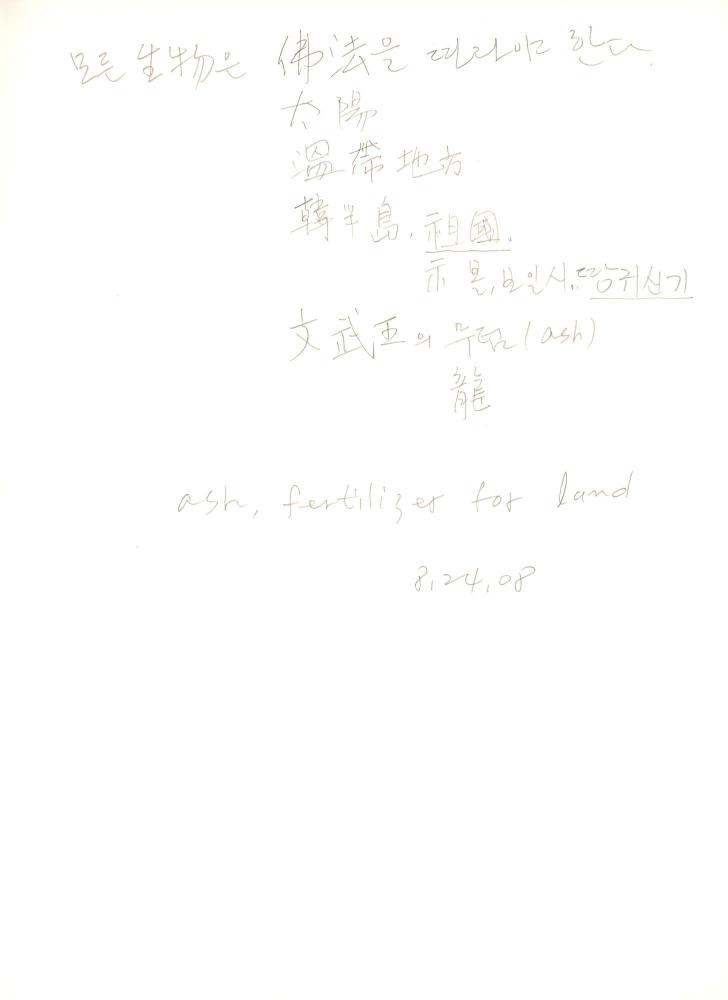 모든 生物은 佛法을 따라야 한다.
太陽
溫帶地方
韓半島, 祖國.
示 볼, 보일시, 땅귀신기
文武王의 무덤(ash)
龍
ash, fertilizer for land
8,24,08